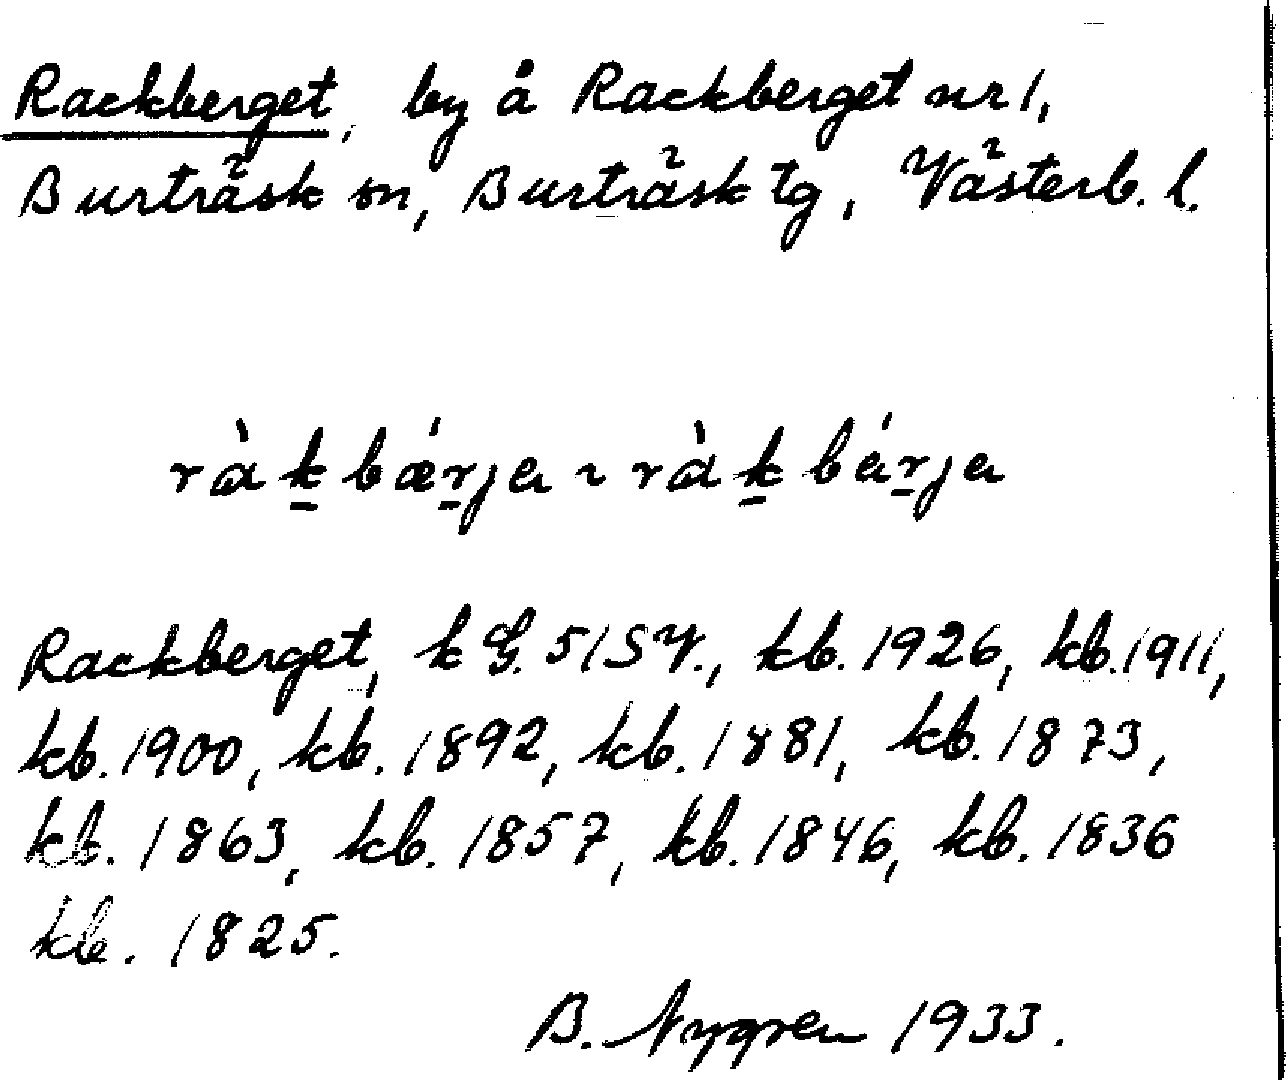 Rackberget, by å Rackberget nr 1,
Burträsk sn, Burträsk tg, Västerb. l.
ràk̲bǽr̲ja ~ ràk̲bár̲ja
Rackberget, k G. 51SV., kb. 1926, kb. 1911,
kb. 1900, kb. 1892, kb. 1881, kb. 1873,
kb. 1863, kb. 1857, kb. 1846, kb. 1836
kb. 1825.
B. Nygren 1933.